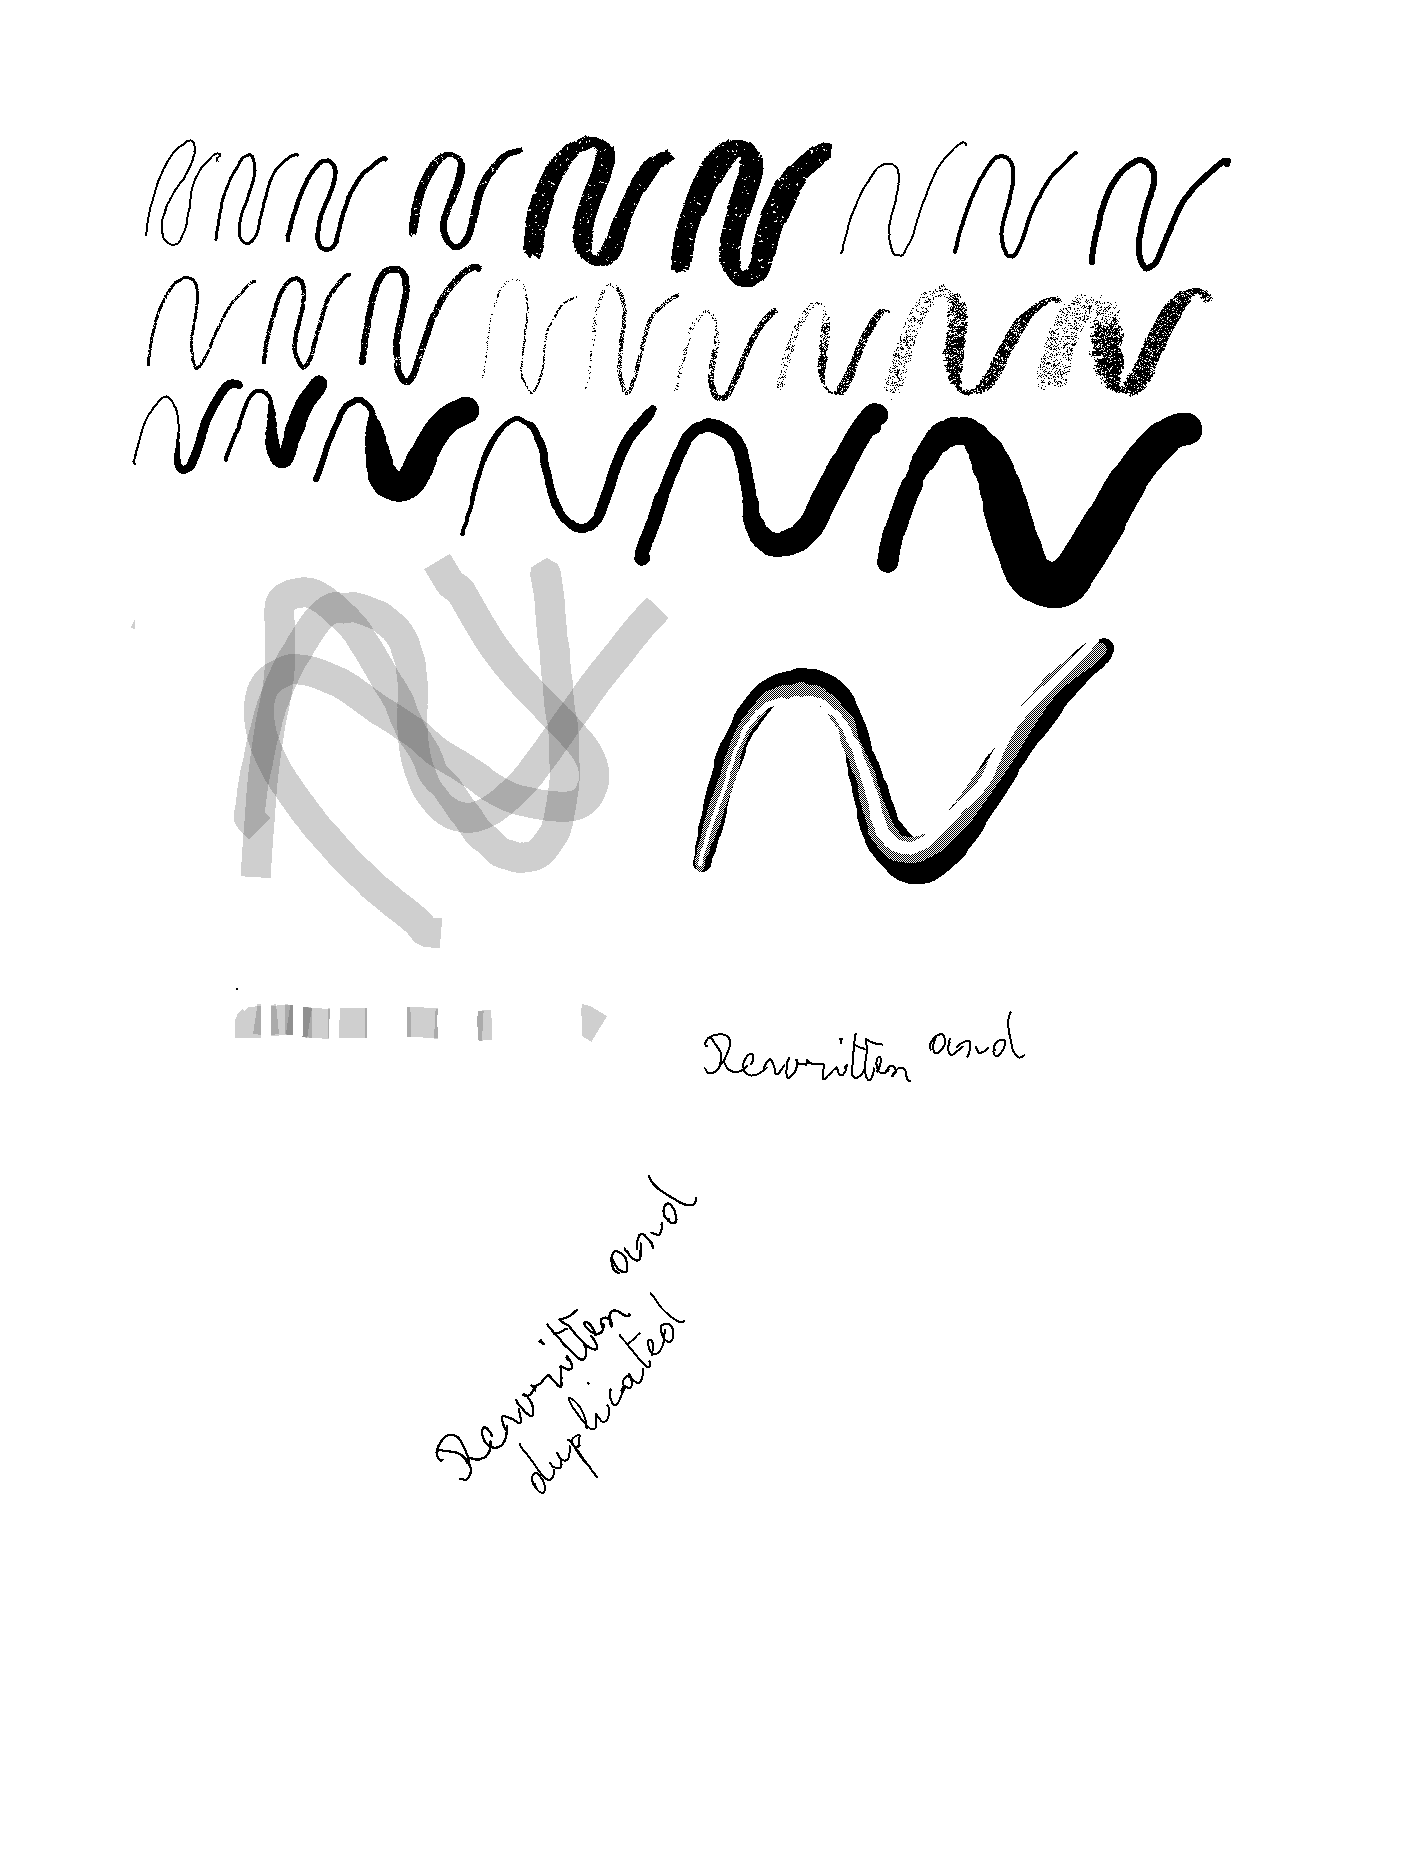 Rewritten and
Rewritten and
duplicated